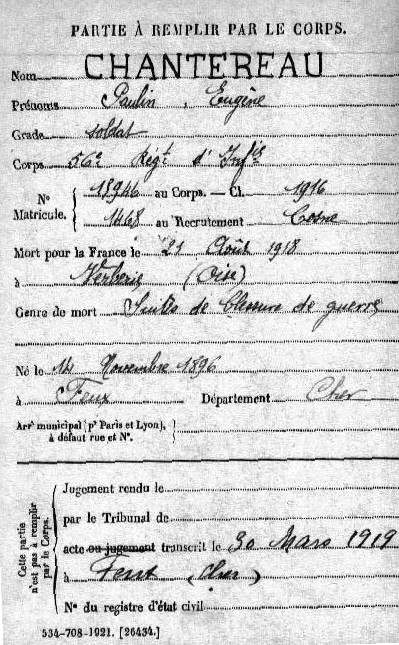 PARTIE À REMPLIR PAR LE CORPS.
Nom CHANTEREAU
Prénoms Paulin, Eugène
Grade soldat
Corps 56e Régt d'Infie
No Matricule. { 18946 au Corps. — Cl. 1916
1468 au Recrutement Cosne
Mort pour la France le 21 Août 1918
à Verberie (Oise)
Genre de mort Suites de blessure de guerre
Né le 14 Novembre 1896
à Feux Département Cher
Arrt municipal (pr Paris et Lyon), à défaut rue et No. }
Cette partie n'est pas à remplir par le Corps. {
Jugement rendu le
par le Tribunal de
acte ou jugement transcrit le 30 Mars 1919
à (Cher)
No du registre d'état civil
534-708-1921. [26434.]